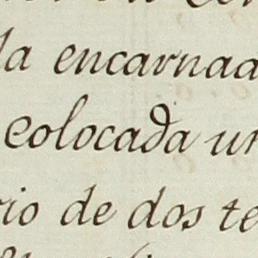 la encarnad
colocada un
rio de dos te